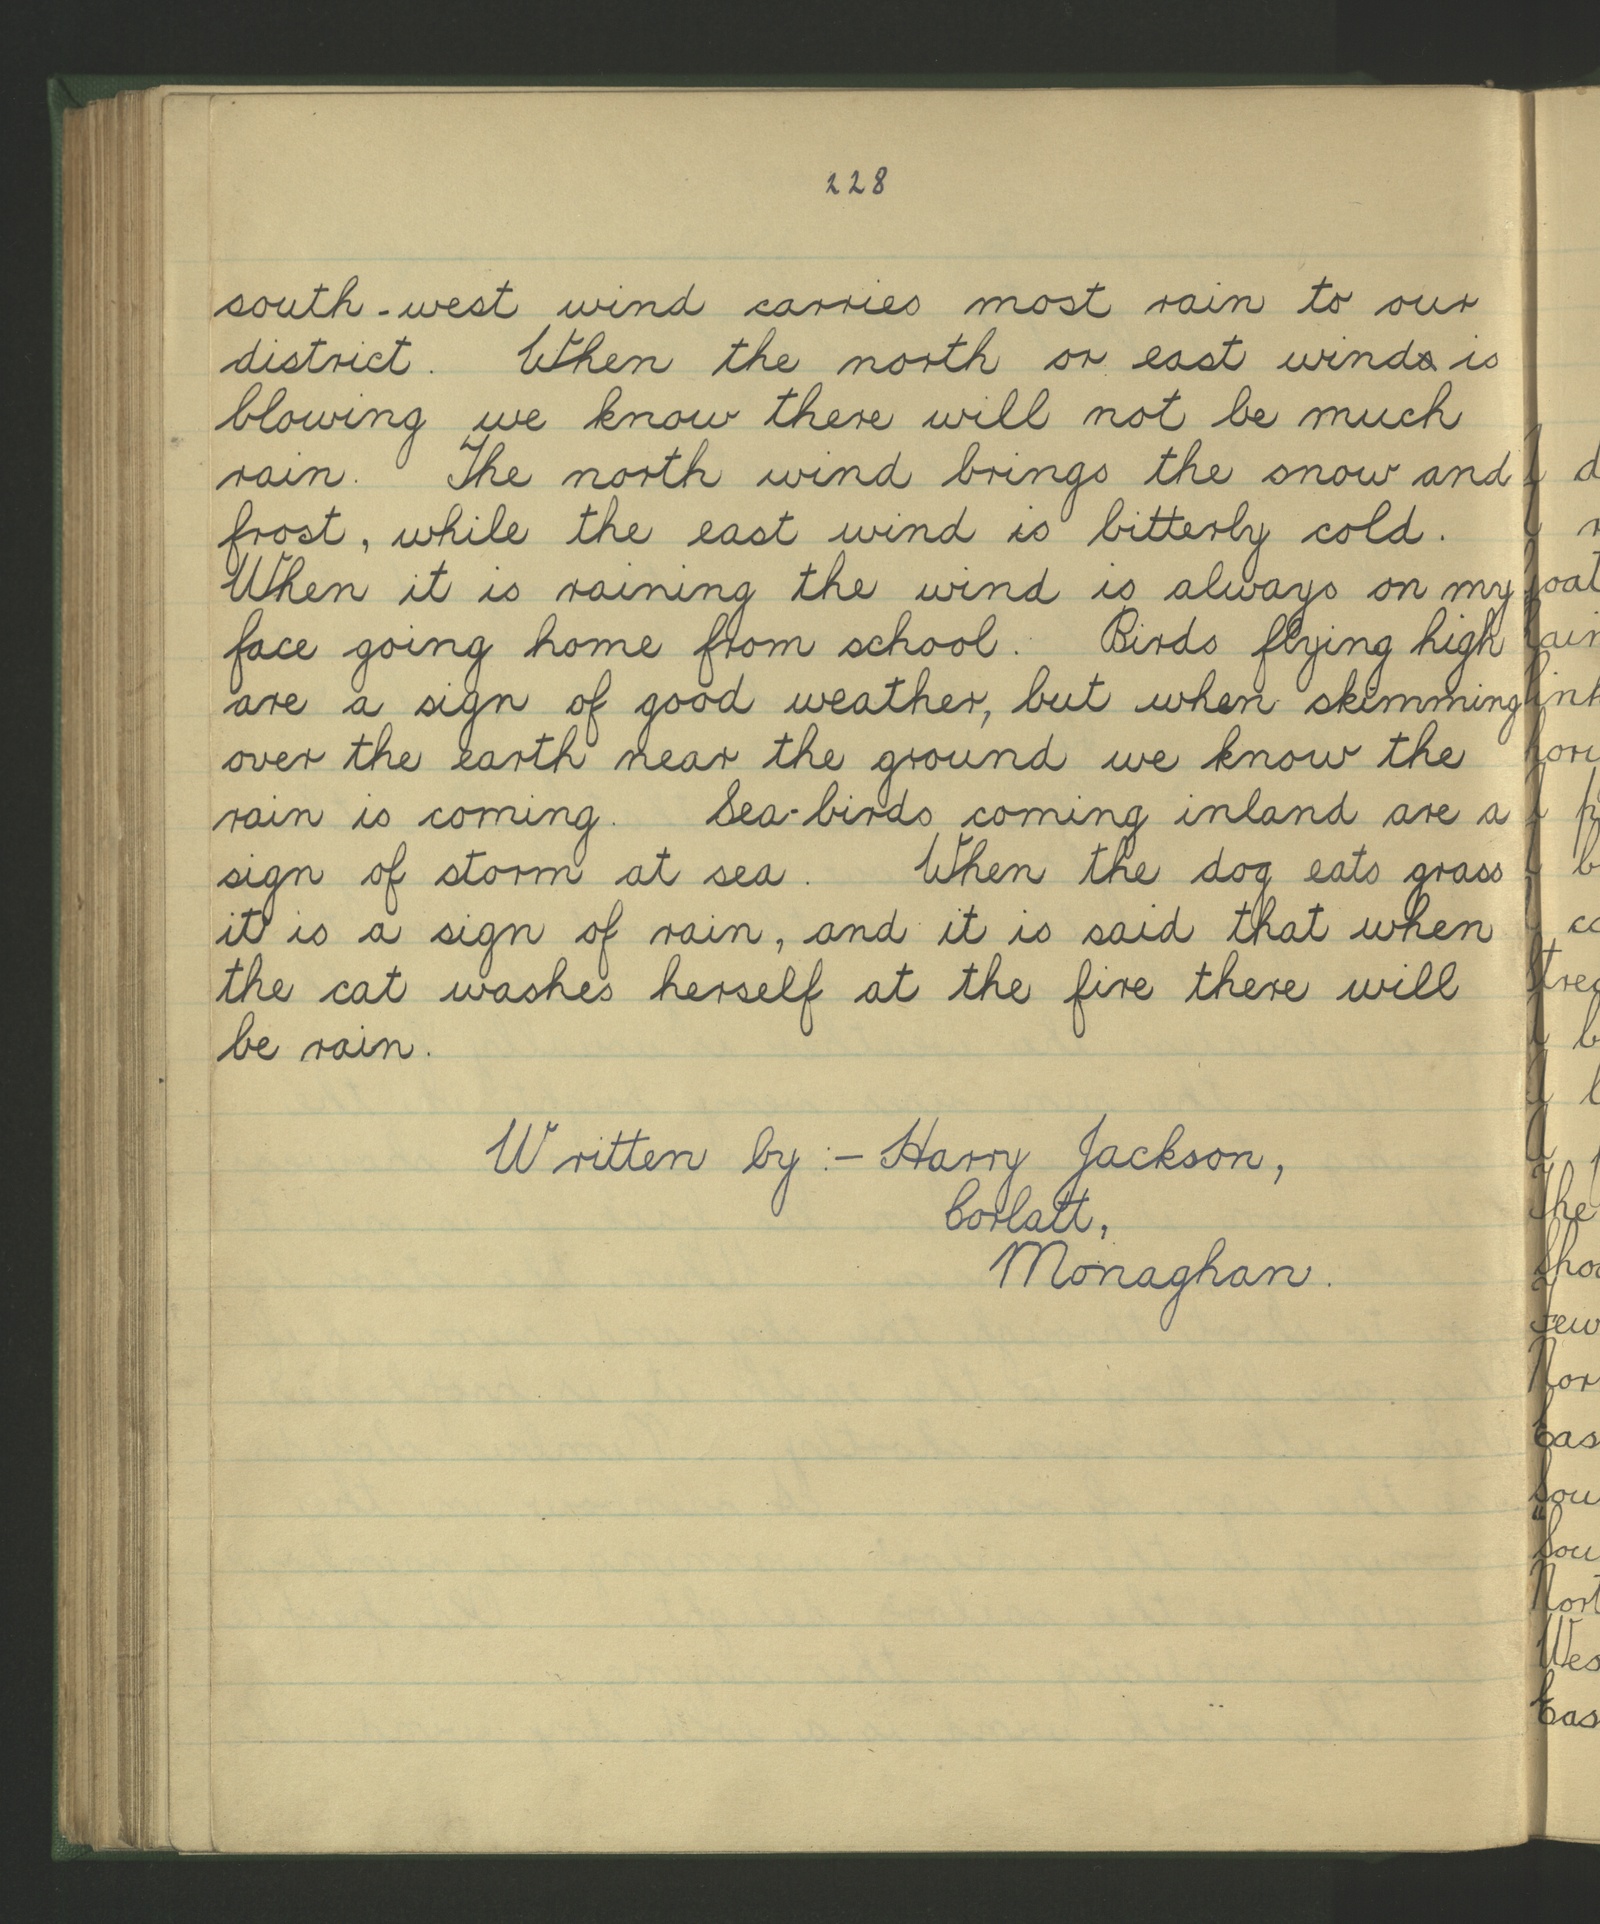 228
south-west wind carries most rain to our
district. When the north or east wind is
blowing we know there will not be much
rain. The north wind brings the snow and
frost, while the east wind is bitterly cold.
When it is raining the wind is always on my
face going home from school. Birds flying high
are a sign of good weather, but when skimming
over the earth near the ground we know the
rain is coming. Sea-birds coming inland are a
sign of storm at sea. When the dog eats grass
it is a sign of rain, and it is said that when
the cat washes herself at the fire there will
be rain.
Written by :- Harry Jackson,
Corlatt,
Monaghan.